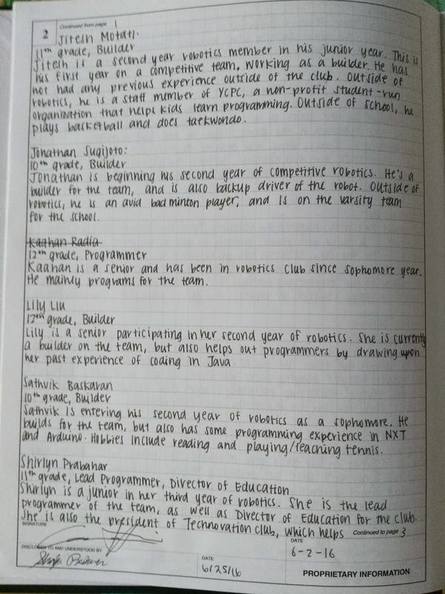 2
Continued from page 1
Jitesh Motati:
11th grade, Builder
Jitesh is a second year robotics member in his junior year. This is
his first year on a competitive team, working as a builder. He has
not had any previous experience outside of the club. Outside of
robotics, he is a staff member of YCPC, a non-profit student-run
organization that helps kids learn programming. Outside of school, he
plays basketball and does taekwondo.
Jonathan Sugijoto:
10th grade, Builder
Jonathan is beginning his second year of competitive robotics. He's a
builder for the team, and is also backup driver of the robot. Outside of
robotics, he is an avid badminton player, and is on the varsity team
for the school.
Kaahan Radia
12th grade, Programmer
Kaahan is a senior and has been in robotics club since sophomore year.
He mainly programs for the team.
Lily Liu
12th grade, Builder
Lily is a senior participating in her second year of robotics. She is currently
a builder on the team, but also helps out programmers by drawing upon
her past experience of coding in Java
Sathvik Baskaran
10th grade, Builder
Sathvik is entering his second year of robotics as a sophomore. He
builds for the team, but also has some programming experience in NXT
and Arduino. Hobbies include reading and playing/teaching tennis.
Shirlyn Prabahar
11th grade, Lead Programmer, Director of Education
Shirlyn is a junior in her third year of robotics. She is the lead
programmer of the team, as well as Director of Education for the club.
She is also the president of Technovation club, which helps
Continued to page 3
SIGNATURE
DATE
6-2-16
DISCLOSED TO AND UNDERSTOOD BY
DATE
6/25/16
PROPRIETARY INFORMATION